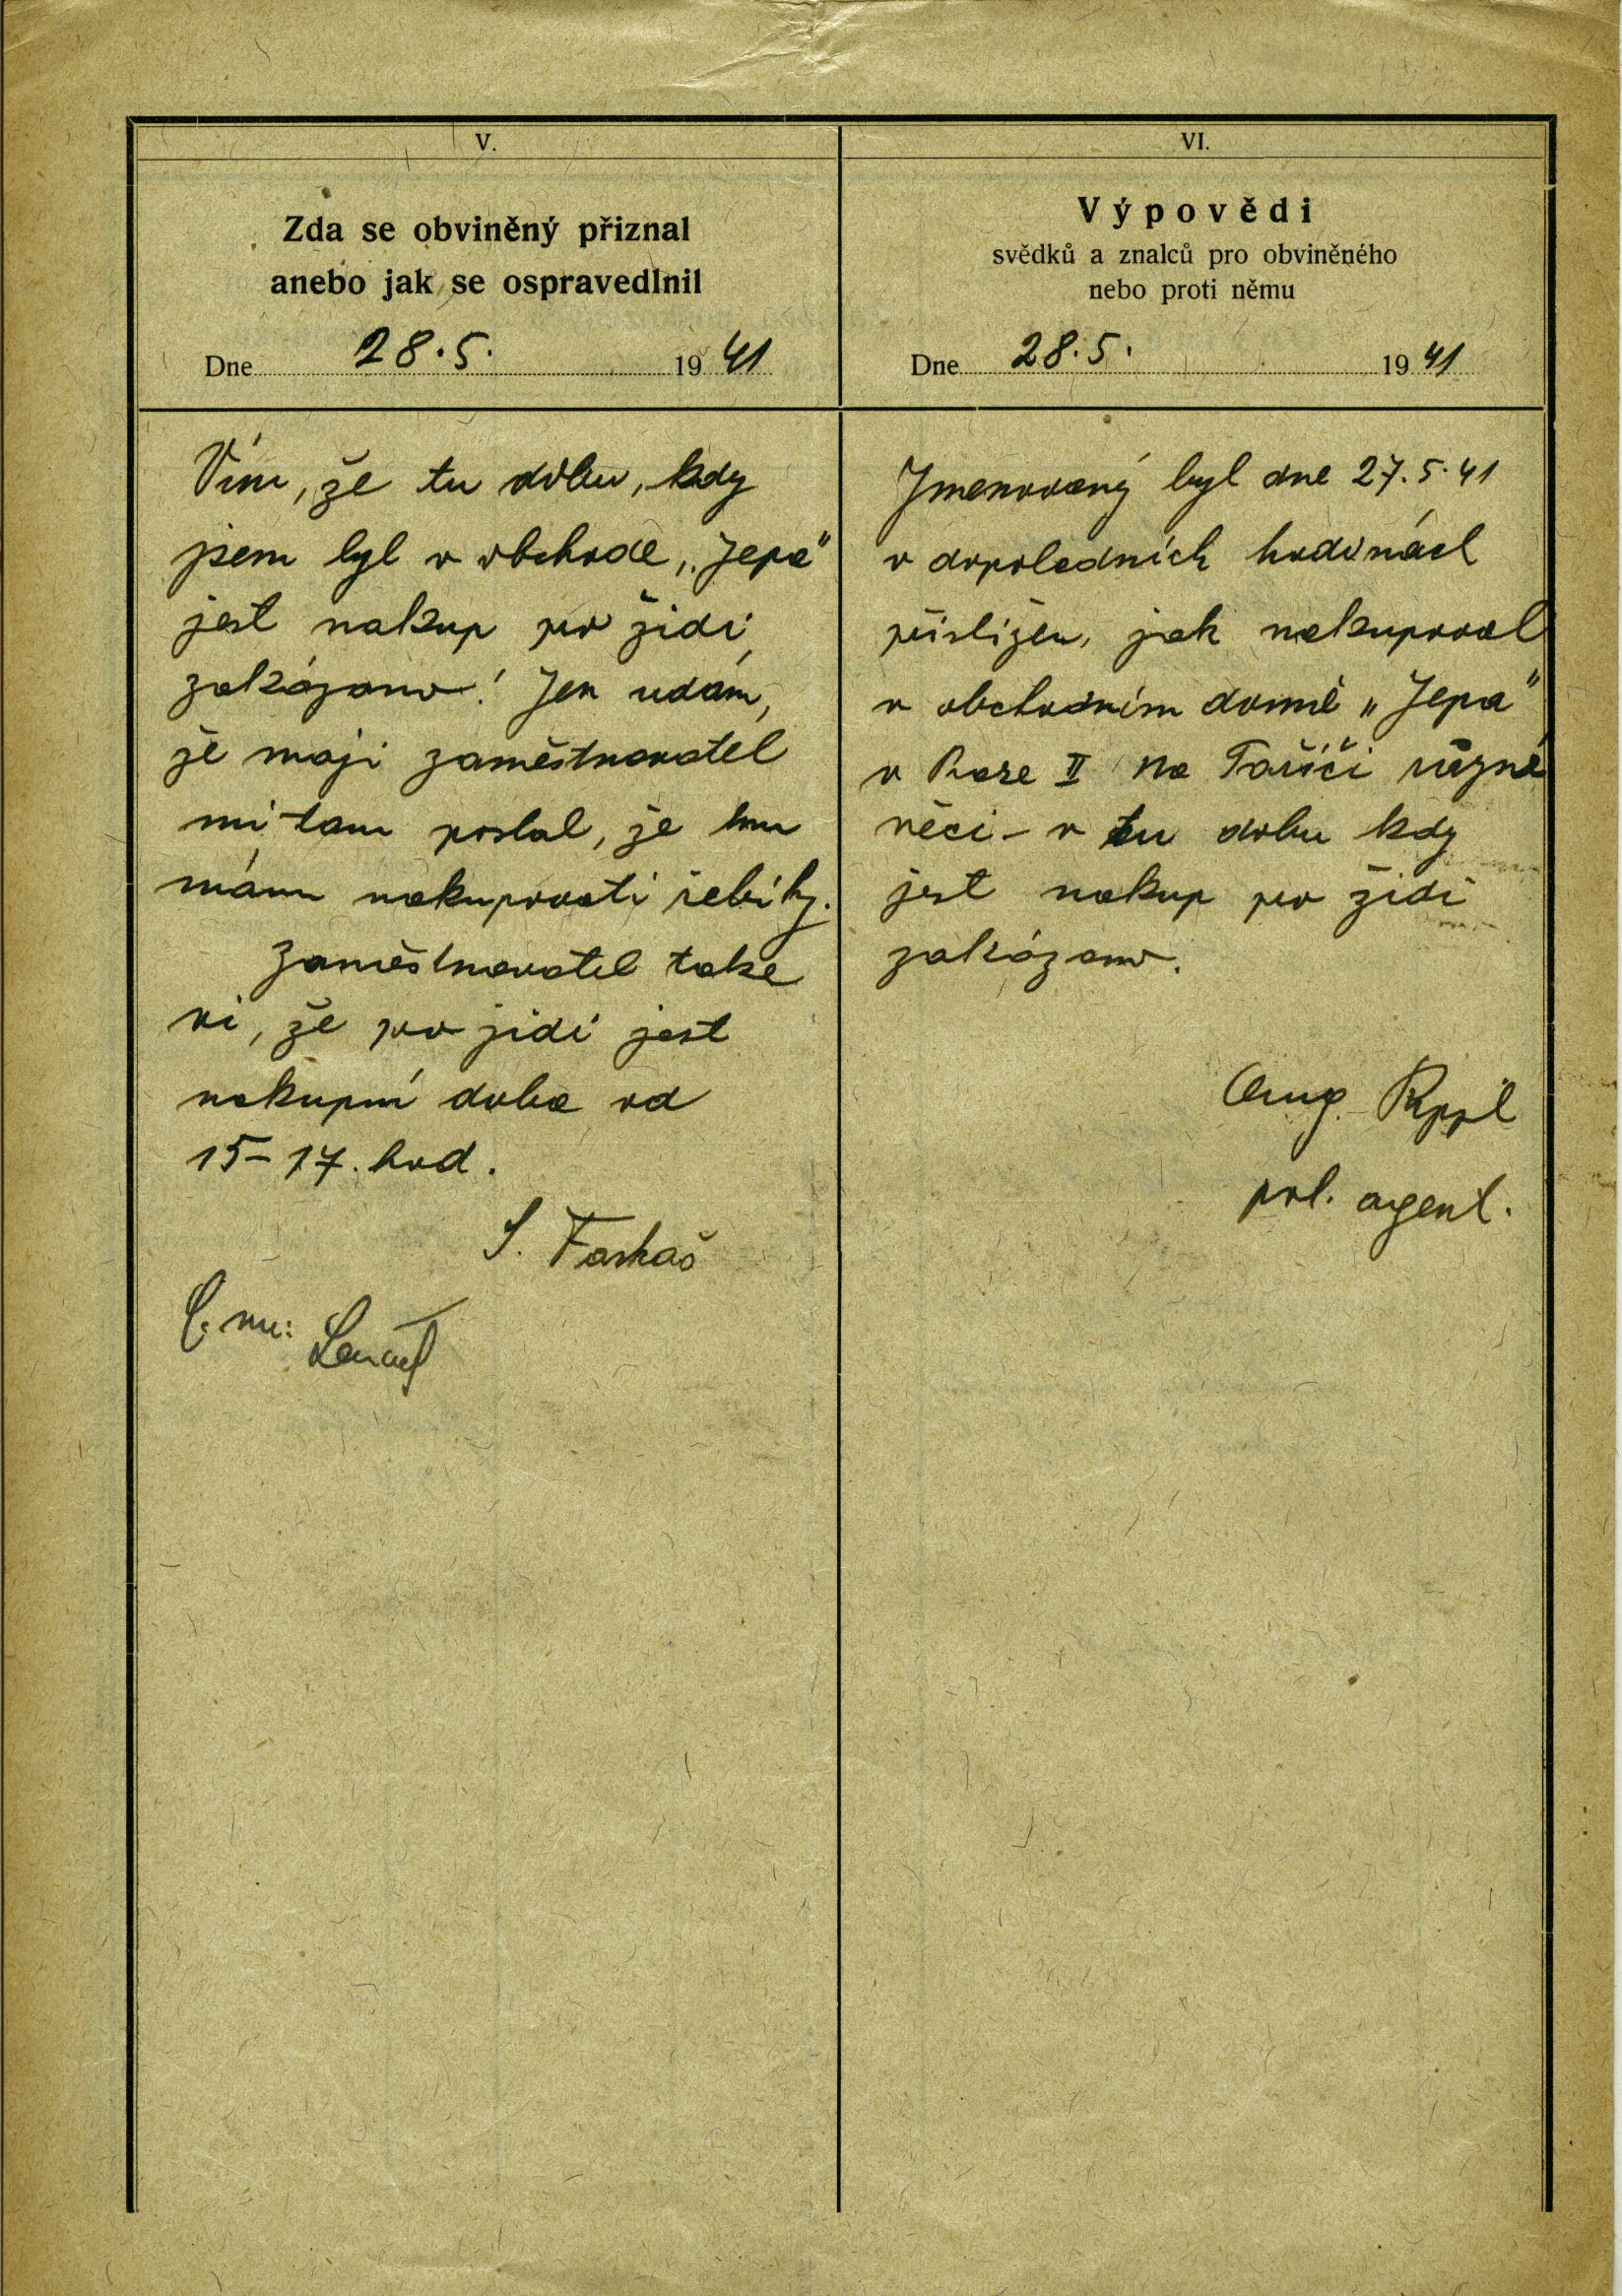 V.
Zda se obviněný přiznal
anebo jak se ospravedlnil
Dne 28.5. 1941
Vím, že tu dobu, kdy
jsem byl v obchodě „Jepa"
jest nakup pro židi
zakázano! Jen udám,
že maji zaměstnavatel
mi tam poslal, že mu
mám nakupovati řebiky.
Zaměstnavatel take
vi, že pro jidi jest
nakupní doba od
15-17. hod.
VI.
Výpovědi
svědků a znalců pro obviněného
nebo proti němu
Dne 28.5. 1941
Jmenovaný byl dne 27.5.41
v dopoledních hodinách
přistižen, jak nakupoval
v obchodním domě „Jepa"
v Praze II Na Poříčí různé
věci - v tu dobu kdy
jest nakup pro židi
zakázano.
pol. agent.